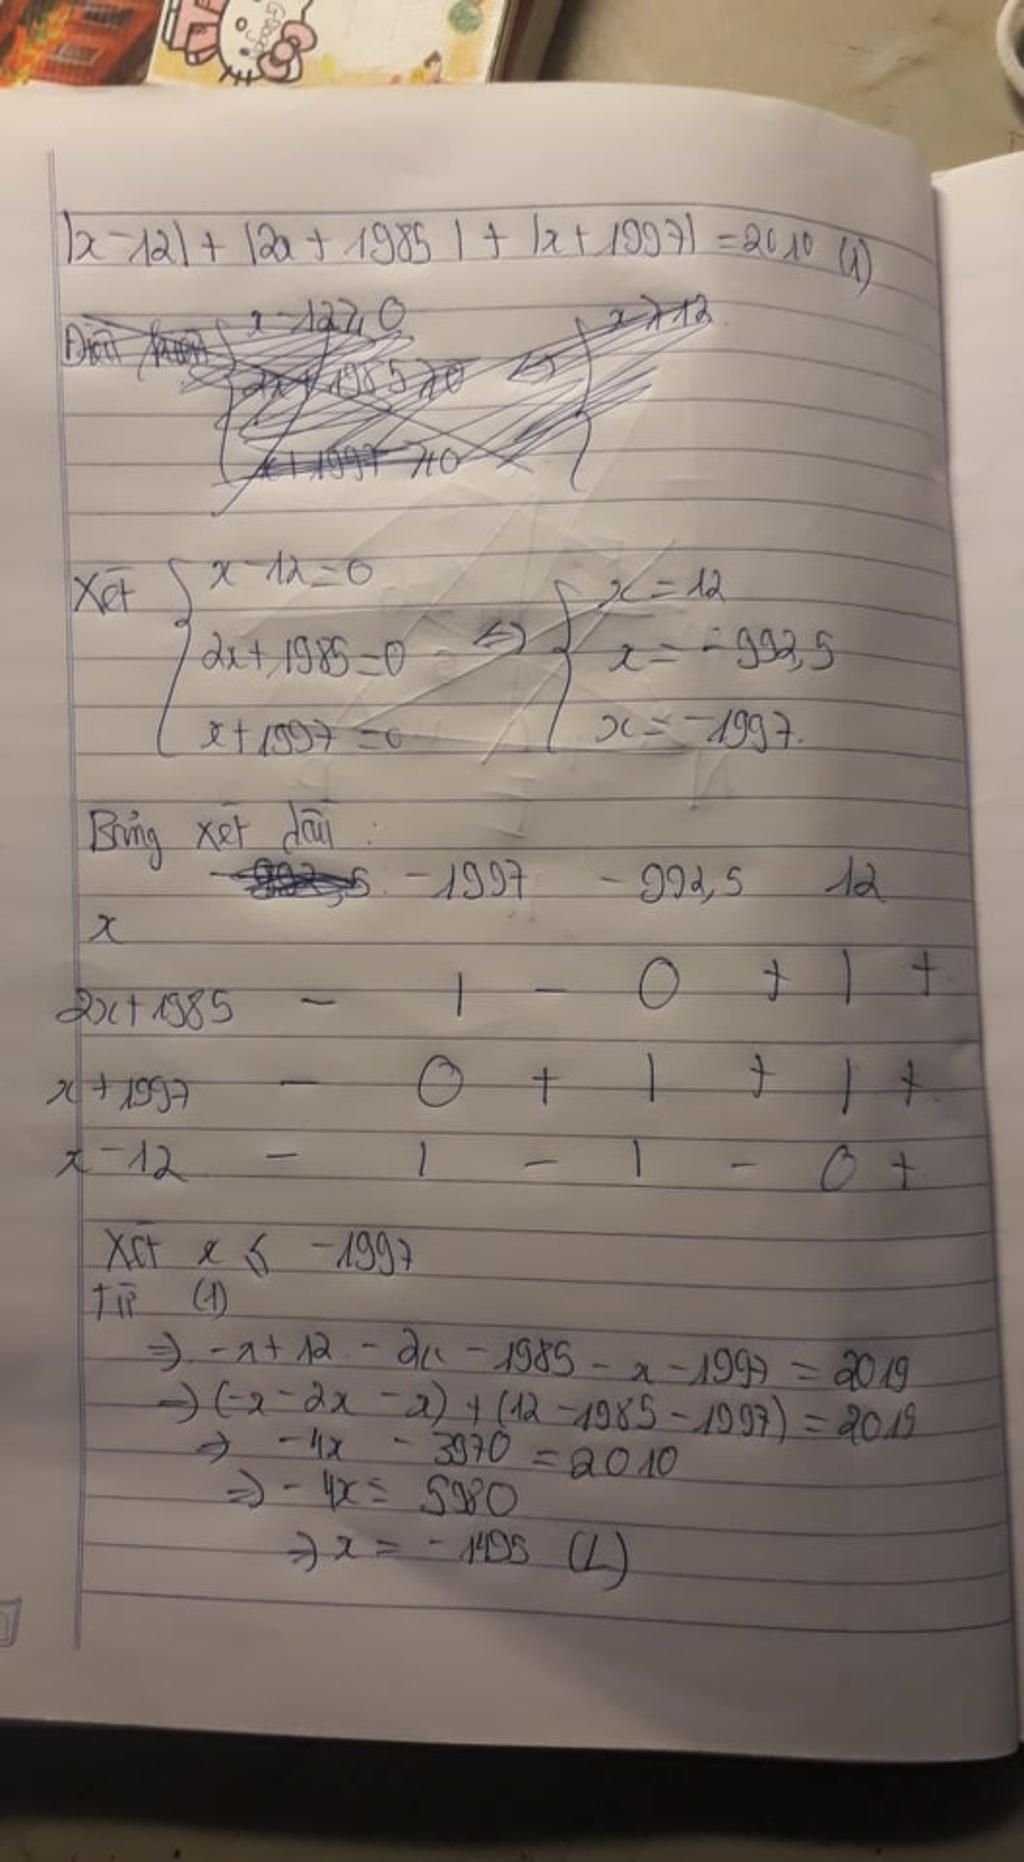 |x-12| + |2x + 1985| + |x + 1997| = 2010 (1)
x - 12 ≥ 0
x ≥ 12
2x + 1985 ≥ 0 <=>
x + 1997 ≥ 0
Xét { x - 12 = 0
{ x = 12
2x + 1985 = 0 <=> x = -992,5
x + 1997 = 0 x = -1997.
Bảng xét dấu :
-992,5 -1997 -992,5 12
x
2x + 1985 - | - 0 + | +
x + 1997 - 0 + | + | +
x - 12 - | - | - 0 +
Xét x ≤ -1997
Từ (1)
=> -x + 12 - 2x - 1985 - x - 1997 = 2019
=> (-x - 2x - x) + (12 - 1985 - 1997) = 2019
=> -4x - 3970 = 2010
=> -4x = 5980
=> x = -1495 (L)